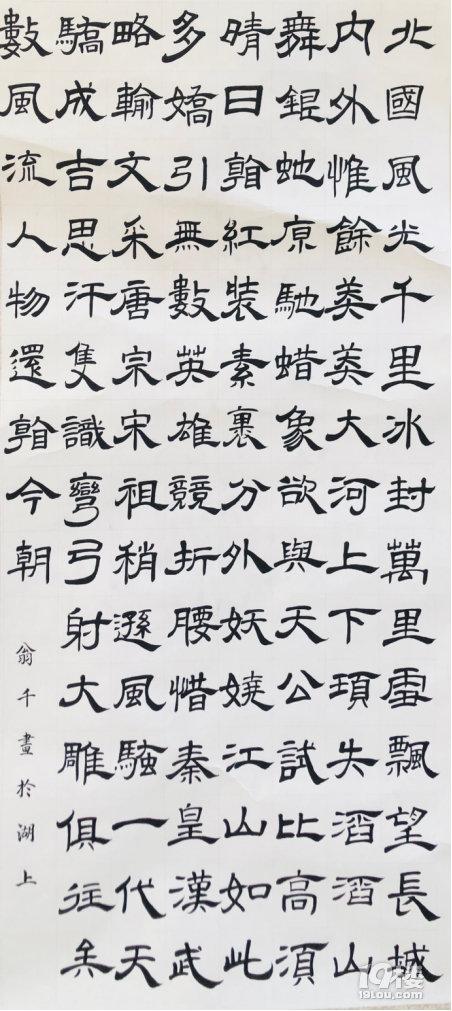 北國風光千里冰封萬里雪飄望長城
内外惟餘莽莽大河上下頓失滔滔山
舞銀虵原馳蜡象欲與天公試比高須
晴日看紅裝素裹分外妖嬈江山如此
多嬌引無數英雄競折腰惜秦皇漢武
略輸文采唐宗宋祖稍遜風騷一代天
驕成吉思汗隻識彎弓射大雕俱往矣
數風流人物還看今朝
翁千畫於湖上
19楼
19lou.com